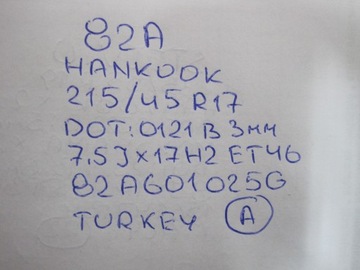 82A
HANKOOK
215/45 R17
DOT:0121 B 3мм
7.5J×17H2 ET46
82A601025G
TURKEY A